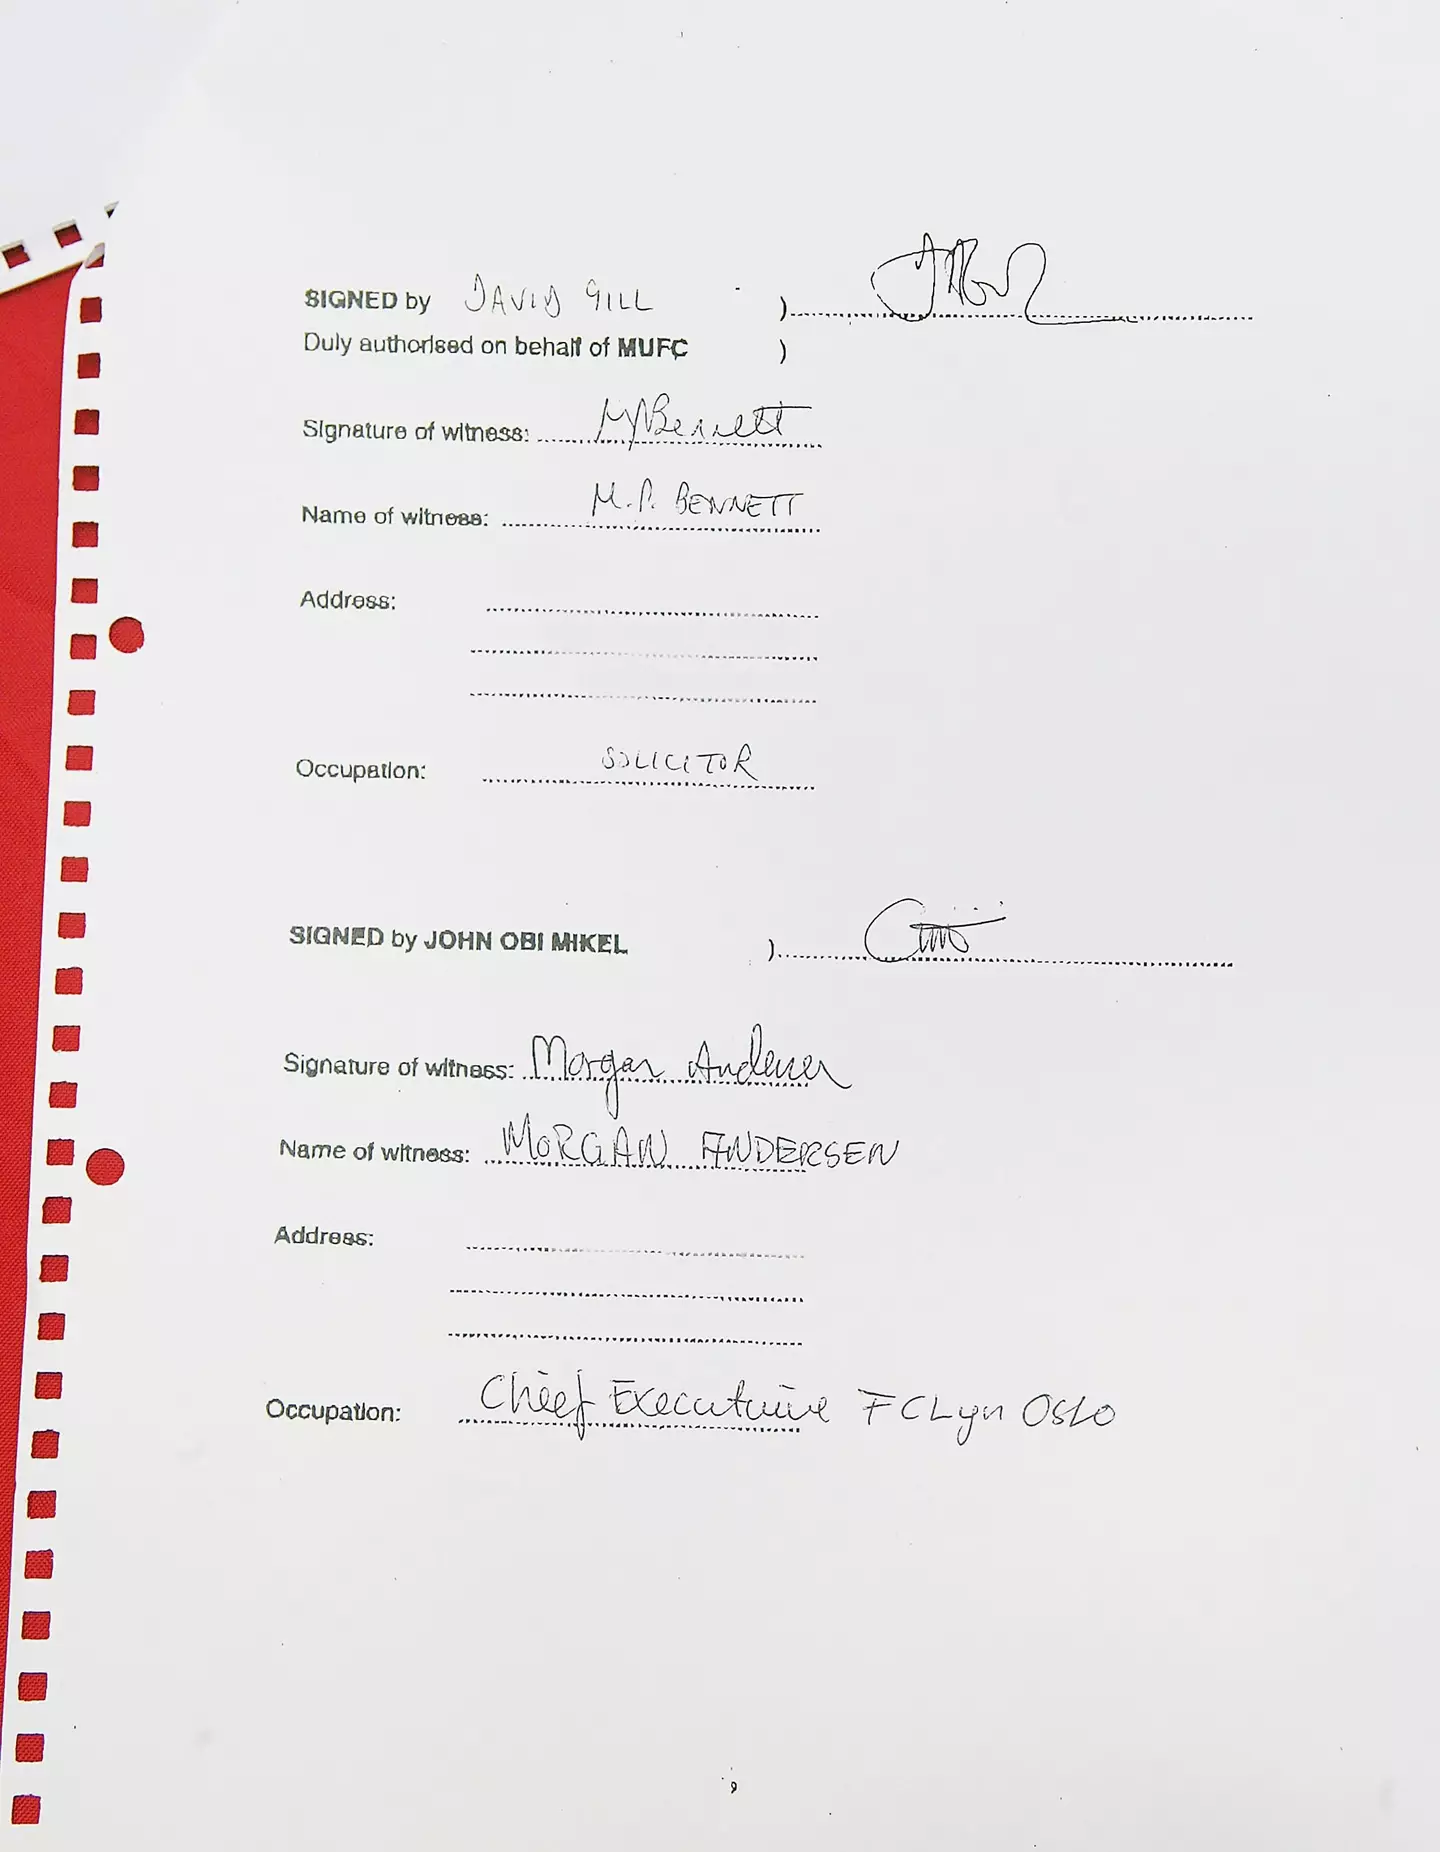 SIGNED by DAVID GILL )
Duly authorised on behalf of MUFC )
Signature of witness: M Bennett
Name of witness: M.P. BENNETT
Address:
Occupation: SOLICITOR
SIGNED by JOHN OBI MIKEL )
Signature of witness: Morgan Andersen
Name of witness: MORGAN ANDERSEN
Address:
Occupation: Chief Executive FC Lyn Oslo
9